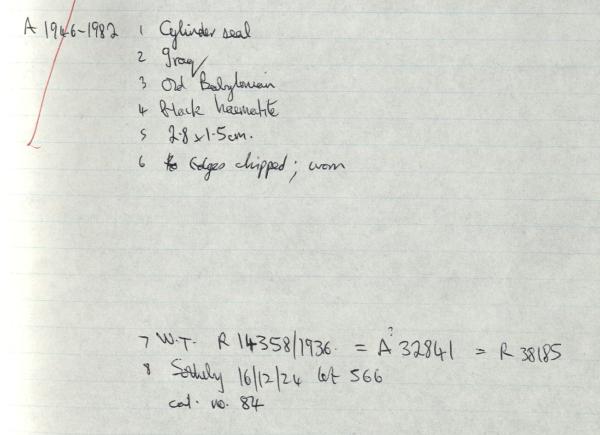 A 1946-1982 1 Cylinder seal
2 Iraq
3 Old Babylonian
4 Black haematite
5 2.8 x 1.5cm.
6 Edges chipped; worn
7 W.T. R 14358/1936. = A? 32841 = R 38185
8 Sotheby 16/12/24 lot 566
cat. no. 84